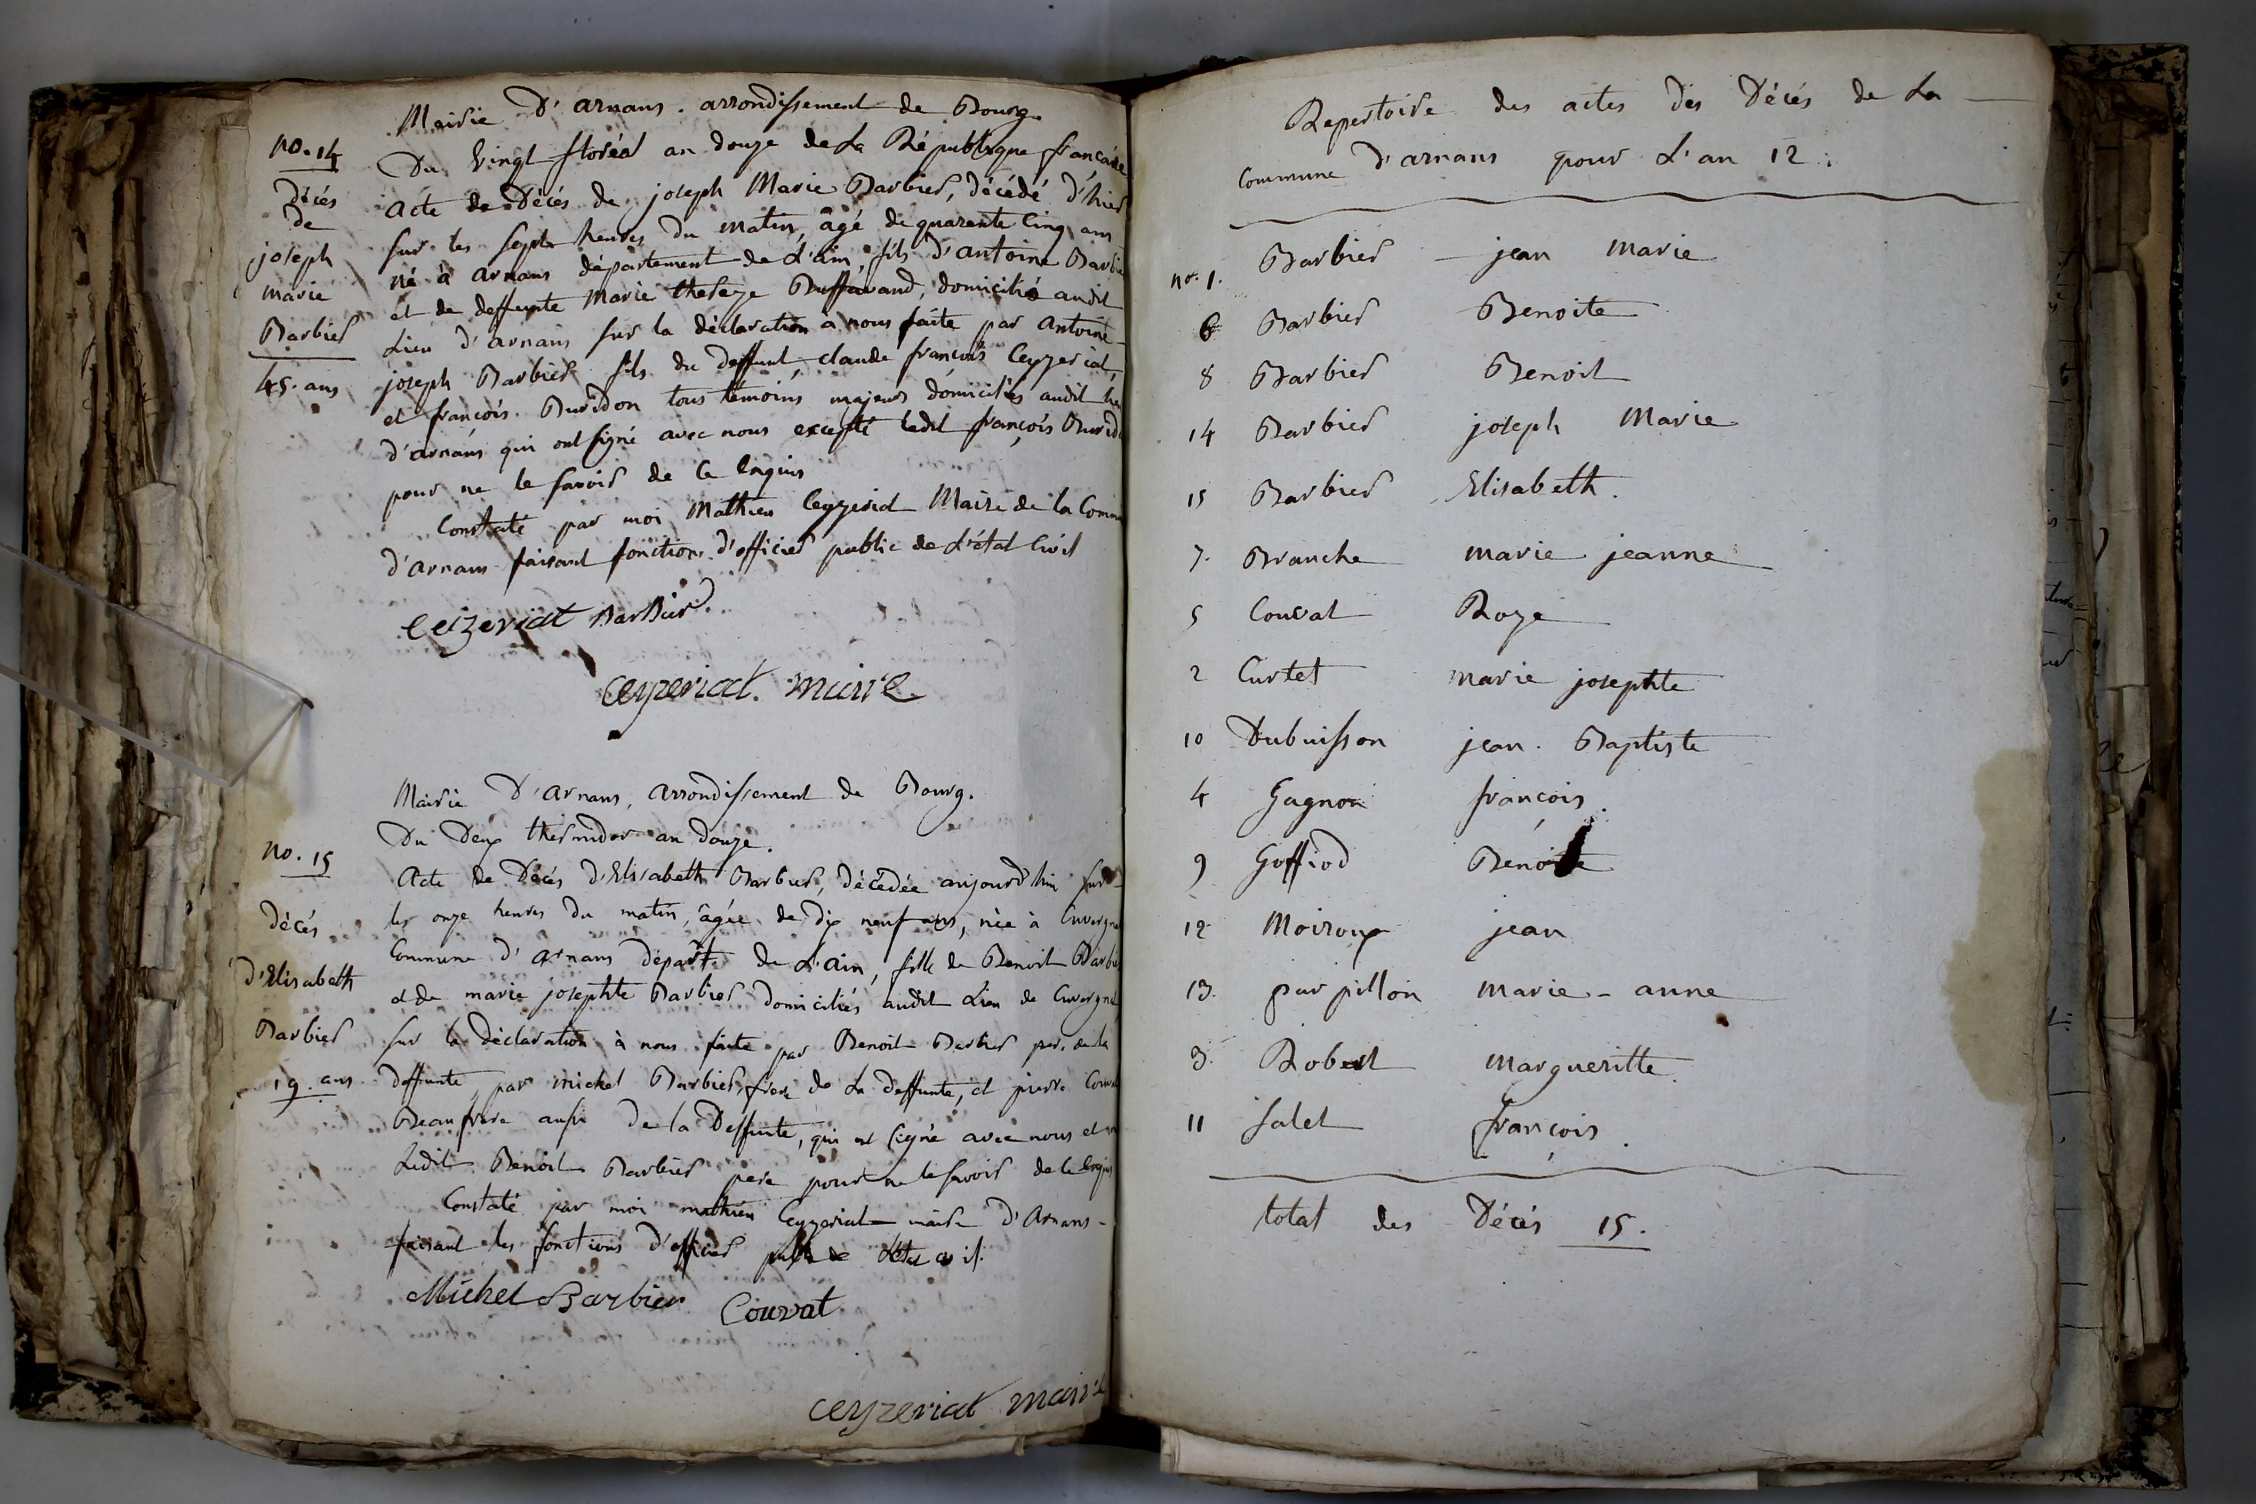 Mairie D'arnans. arrondissement de Bourg.
no. 14
Décés
de
joseph
marie
Barbier
45. ans
Du vingt floréal an douze de La République française
Acte de Décés de joseph Marie Barbier, décédé d'hier
sur les sept heures du matin, âgé de quarante cinq ans
né à arnans département de L'ain, fils d'antoine Barbie
et de deffunte Marie thereze Buffavand, domiciliés audit
Lieu d'arnans sur la déclaration à nous faite par antoine
joseph Barbier fils du deffunt, claude françois Ceyzeriat,
et françois Buridon tous témoins majeurs domiciliés audit lieu
d'arnans qui ont signé avec nous excepté ledit françois Burid
pour ne le savoir de ce enquis
Constaté par moi Mathieu Ceyzeriat Maire de la Comm
d'arnans faisant fonctions d'officier public de L'état Civil
Ceizeriat Barbier
Ceyzeriat. maire
Mairie D'arnans, arrondissement de Bourg.
no. 15
décés
d'Elisabeth
Barbier
19. ans
Du Deux thermidor an douze.
Acte de Décés d'Elisabeth Barbier, décédée aujourd'hui sur
les onze heures du matin, âgée de dix neuf ans, née à Cuvergna
Commune d'arnans départt. de L'ain, fille de Benoit Barbie
et de marie josephte Barbier domiciliés audit Lieu de Cuvergna
sur la déclaration à nous faite par Benoit Barbier pere de la
deffunte, par michel Barbier frere de La deffunte, et pierre Couvat
Beaufrere aussi de la Deffunte, qui ont signé avec nous et
Ledit Benoit Barbier pere pour ne le savoir de ce enquis
Constaté par moi mathieu Ceyzeriat maire d'Arnans
faisant les fonctions d'officier public de L'état civil.
Michel Barbier Couvat
Ceyzeriat maire
Repertoire des actes des Décés de La
Commune d'arnans pour L'an 12.
no. 1. Barbier jean Marie
6 Barbier Benoite
8 Barbier Benoit
14 Barbier joseph Marie
15 Barbier Elisabeth.
7. Branche marie jeanne
5 Couvat Roze
2 Curtet marie josephte
10 Dubuisson jean. Baptiste
4 Gagnon françois.
9 Goffiod Benoite
12 Moiroux jean
13. parpillon marie-anne
3. Robert margueritte.
11 Salet françois.
total des Décés 15.